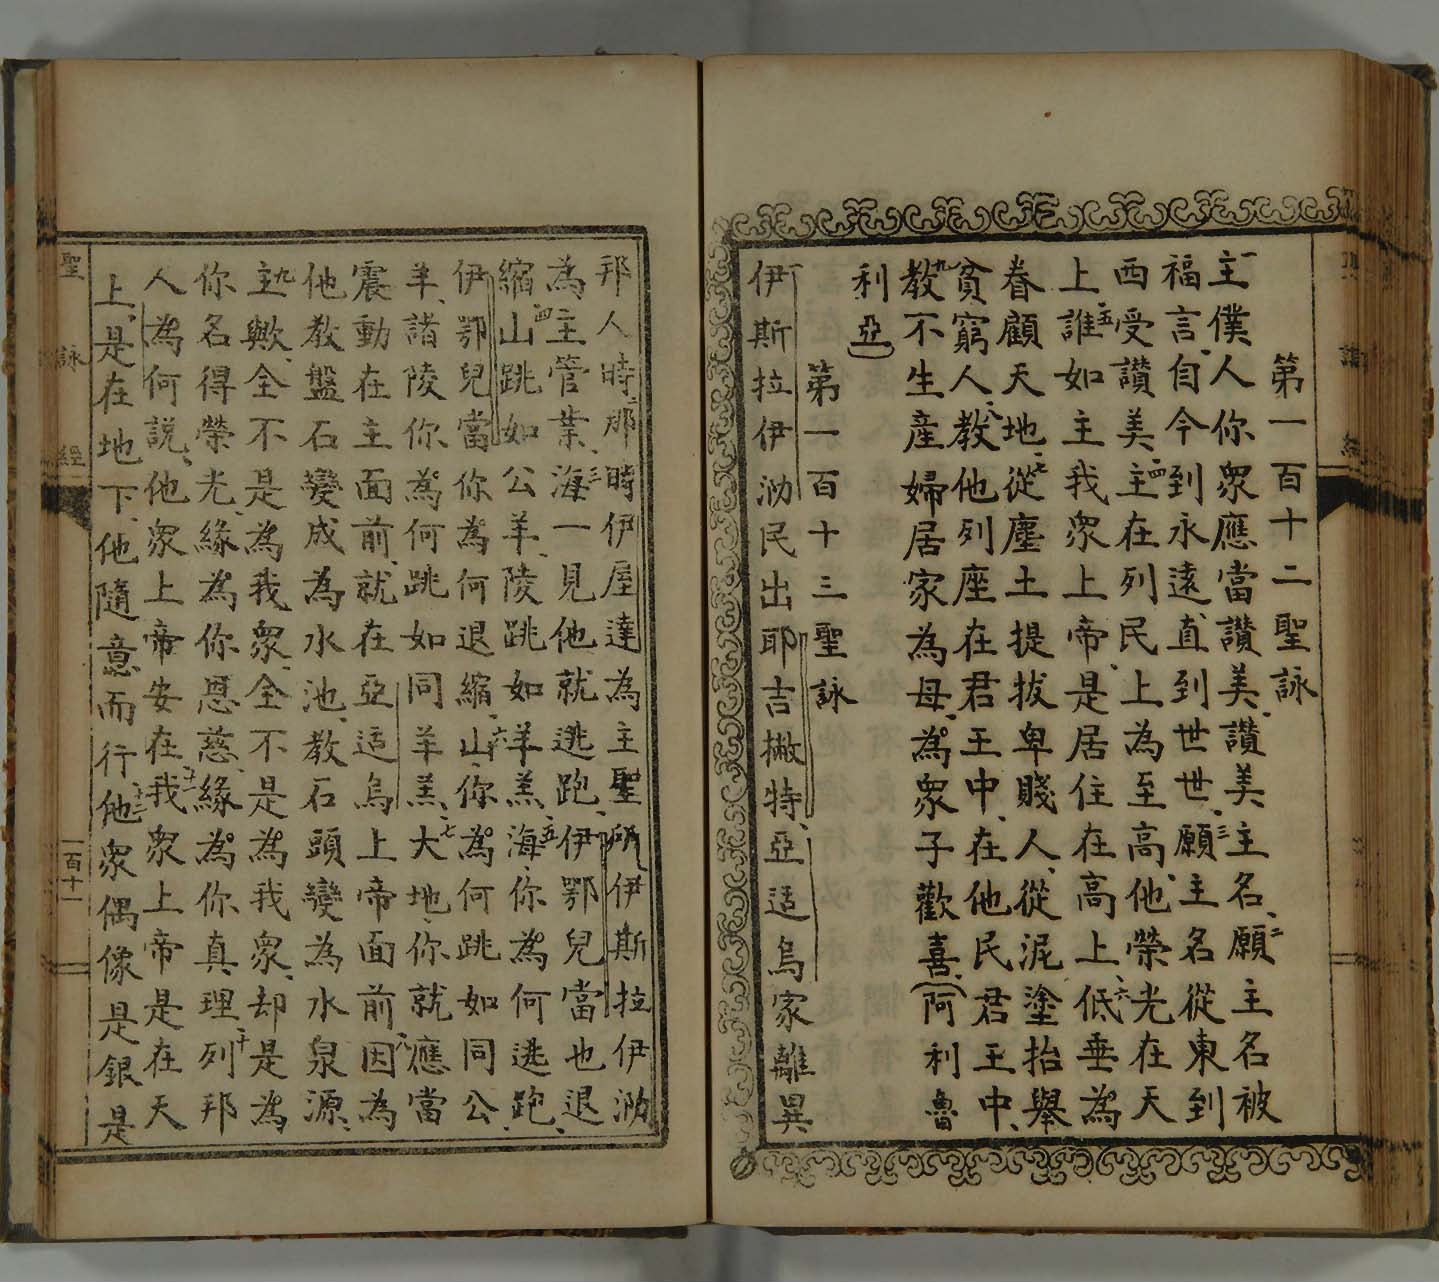 第一百十二聖詠
一主僕人你衆應當讃美、讃美主名、二願主名被
福言、自今到永遠直到世世、三願主名從東到
西受讃美、四主在列民上為至高、他榮光在天
上、五誰如主我衆上帝、是居住在高上、六低垂為
眷顧天地、七從塵土提拔卑賤人、從泥塗抬舉
貧窮人、八教他列座在君王中、在他民君王中、
九教不生産婦居家為母、為衆子歡喜、(阿利魯
利亞)
第一百十三聖詠
一伊斯拉伊泐民出耶吉撇特、亞适烏家離異
邦人時、二那時伊屋達為主聖所、伊斯拉伊泐
為主管業、三海一見他就逃跑、伊鄂兒當也退
縮、四山跳如公羊、陵跳如羊羔、五海、你為何逃跑、
伊鄂兒當你為何退縮、六山、你為何跳如同公
羊、諸陵你為何跳如同羊羔、七大地、你就應當
震動在主面前、就在亞适烏上帝面前、八因為
他教盤石變成為水池、教石頭變為水泉源、
九主歟、全不是為我衆、全不是為我衆、却是為
你名得榮光、緣為你恩慈、緣為你真理、十列邦
人為何說、他衆上帝安在、十一我衆上帝是在天
上、是在地下、他隨意而行、十二他衆偶像是銀是
聖詠經
一百十一